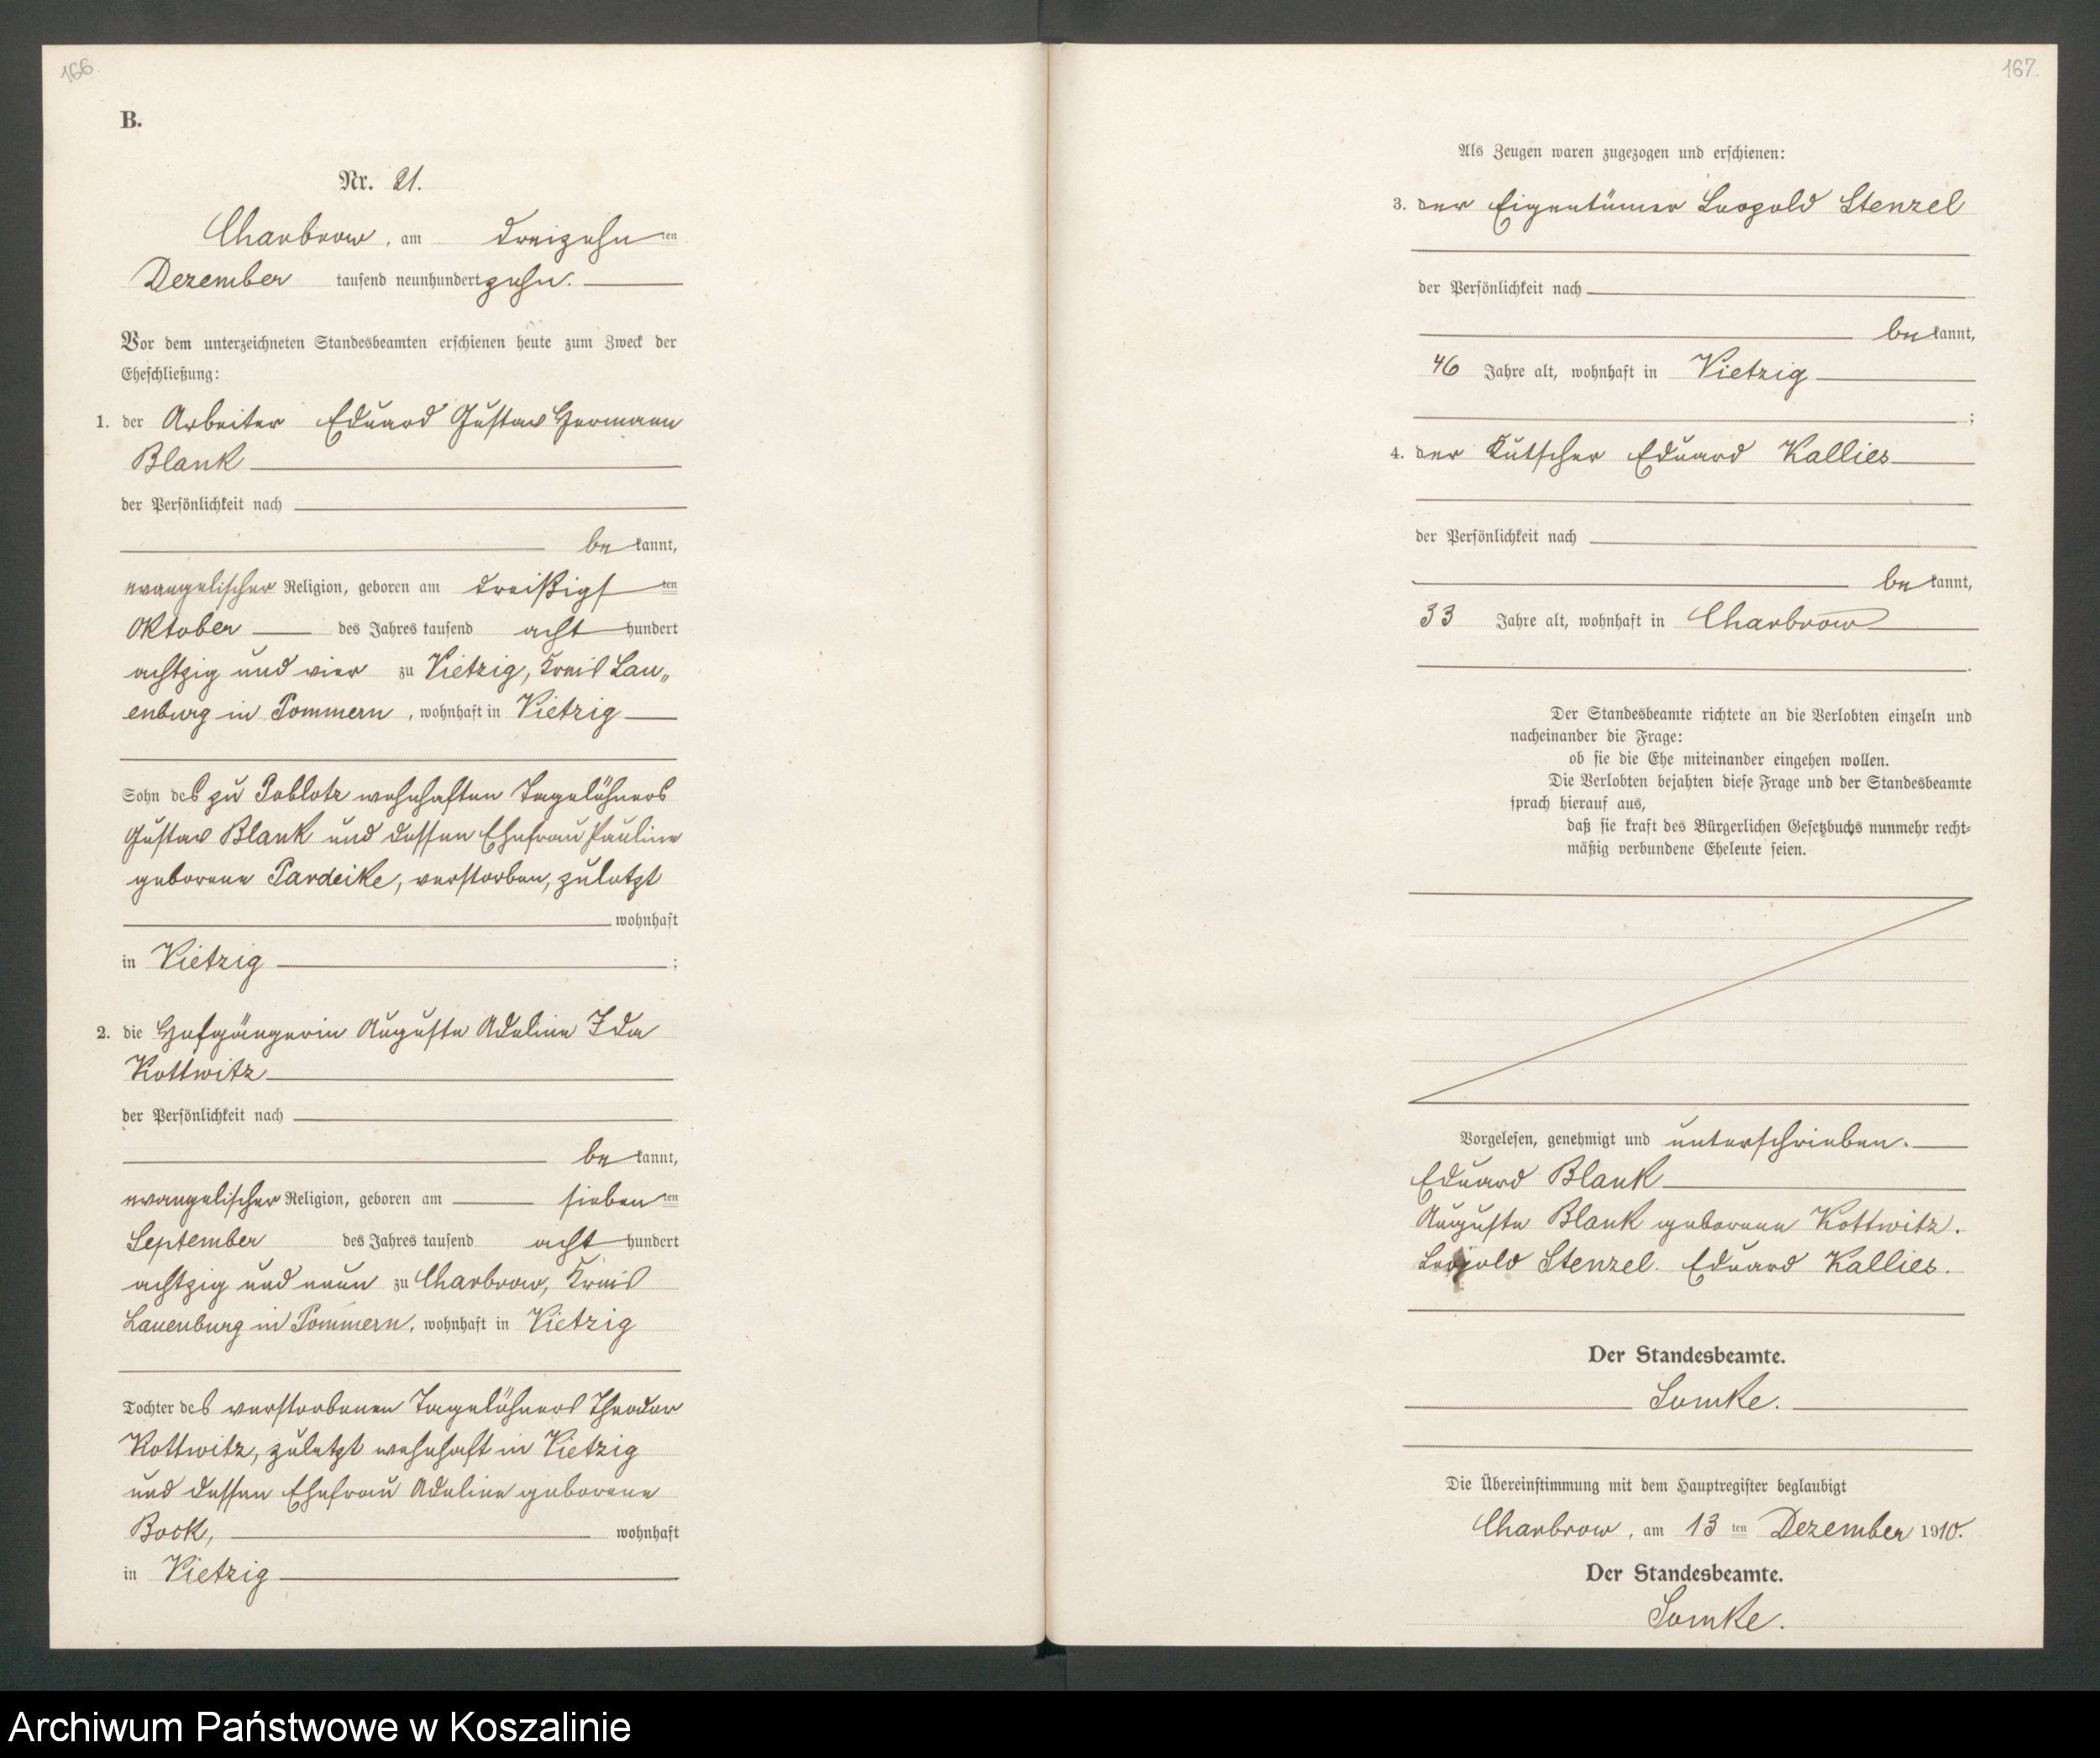 166
B.
Nr. 21.
Charbrow, am dreizehnten
Dezember tausend neunhundertzehn.
Vor dem unterzeichneten Standesbeamten erschienen heute zum Zweck der
Eheschließung:
1. der Arbeiter Eduard Gustav Hermann
Blank
der Persönlichkeit nach
be kannt,
evangelischer Religion, geboren am dreißigsten
Oktober des Jahres tausend acht hundert
achtzig und vier zu Vietzig, Kreis Lau„
enburg in Pommern, wohnhaft in Vietzig
Sohn des zu Poblotz wohnhaften Tagelöhners
Gustav Blank und dessen Ehefrau Pauline
geborene Pardeike, verstorben, zuletzt
wohnhaft
in Vietzig ;
2. die Hofgängerin Auguste Adeline Ida
Kottwitz
der Persönlichkeit nach
be kannt,
evangelischer Religion, geboren am siebenten
September des Jahres tausend acht hundert
achtzig und neun zu Charbrow, Kreis
Lauenburg in Pommern, wohnhaft in Vietzig
Tochter des verstorbenen Tagelöhners Theodor
Kottwitz, zuletzt wohnhaft in Vietzig
und dessen Ehefrau Adeline geborene
Bock, wohnhaft
in Vietzig
167.
Als Zeugen waren zugezogen und erschienen:
3. der Eigentümer Leopold Stenzel
der Persönlichkeit nach
be kannt,
46 Jahre alt, wohnhaft in Vietzig
;
4. der Kutscher Eduard Kallies
der Persönlichkeit nach
be kannt,
33 Jahre alt, wohnhaft in Charbrow
.
Der Standesbeamte richtete an die Verlobten einzeln und
nacheinander die Frage:
ob sie die Ehe miteinander eingehen wollen.
Die Verlobten bejahten diese Frage und der Standesbeamte
sprach hierauf aus,
daß sie kraft des Bürgerlichen Gesetzbuchs nunmehr recht-
mäßig verbundene Eheleute seien.
Vorgelesen, genehmigt und unterschrieben.
Eduard Blank
Auguste Blank geborene Kottwitz.
Leopold Stenzel. Eduard Kallies.
Der Standesbeamte.
Die Übereinstimmung mit dem Hauptregister beglaubigt
Charbrow, am 13 ten Dezember 1910.
Der Standesbeamte.
Archiwum Państwowe w Koszalinie